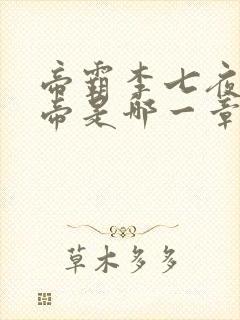 帝霸李七夜
帝是哪一章
草木多多